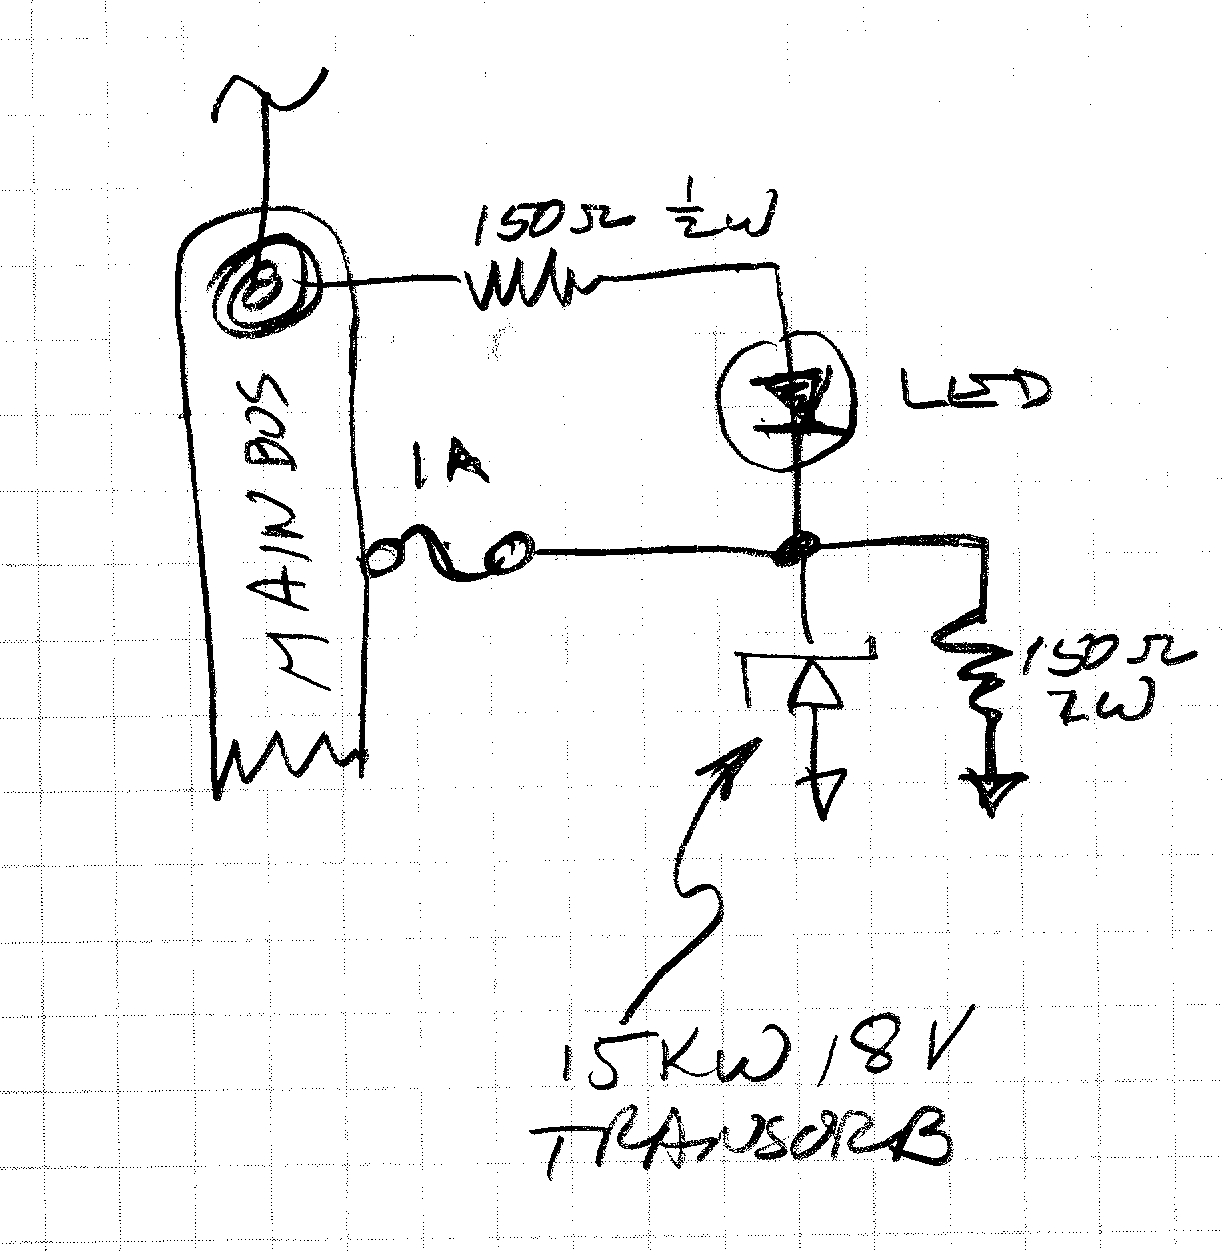 150Ω ½W
LED
MAIN BUS
1A
150Ω
2W
15KW 18V
TRANSORB